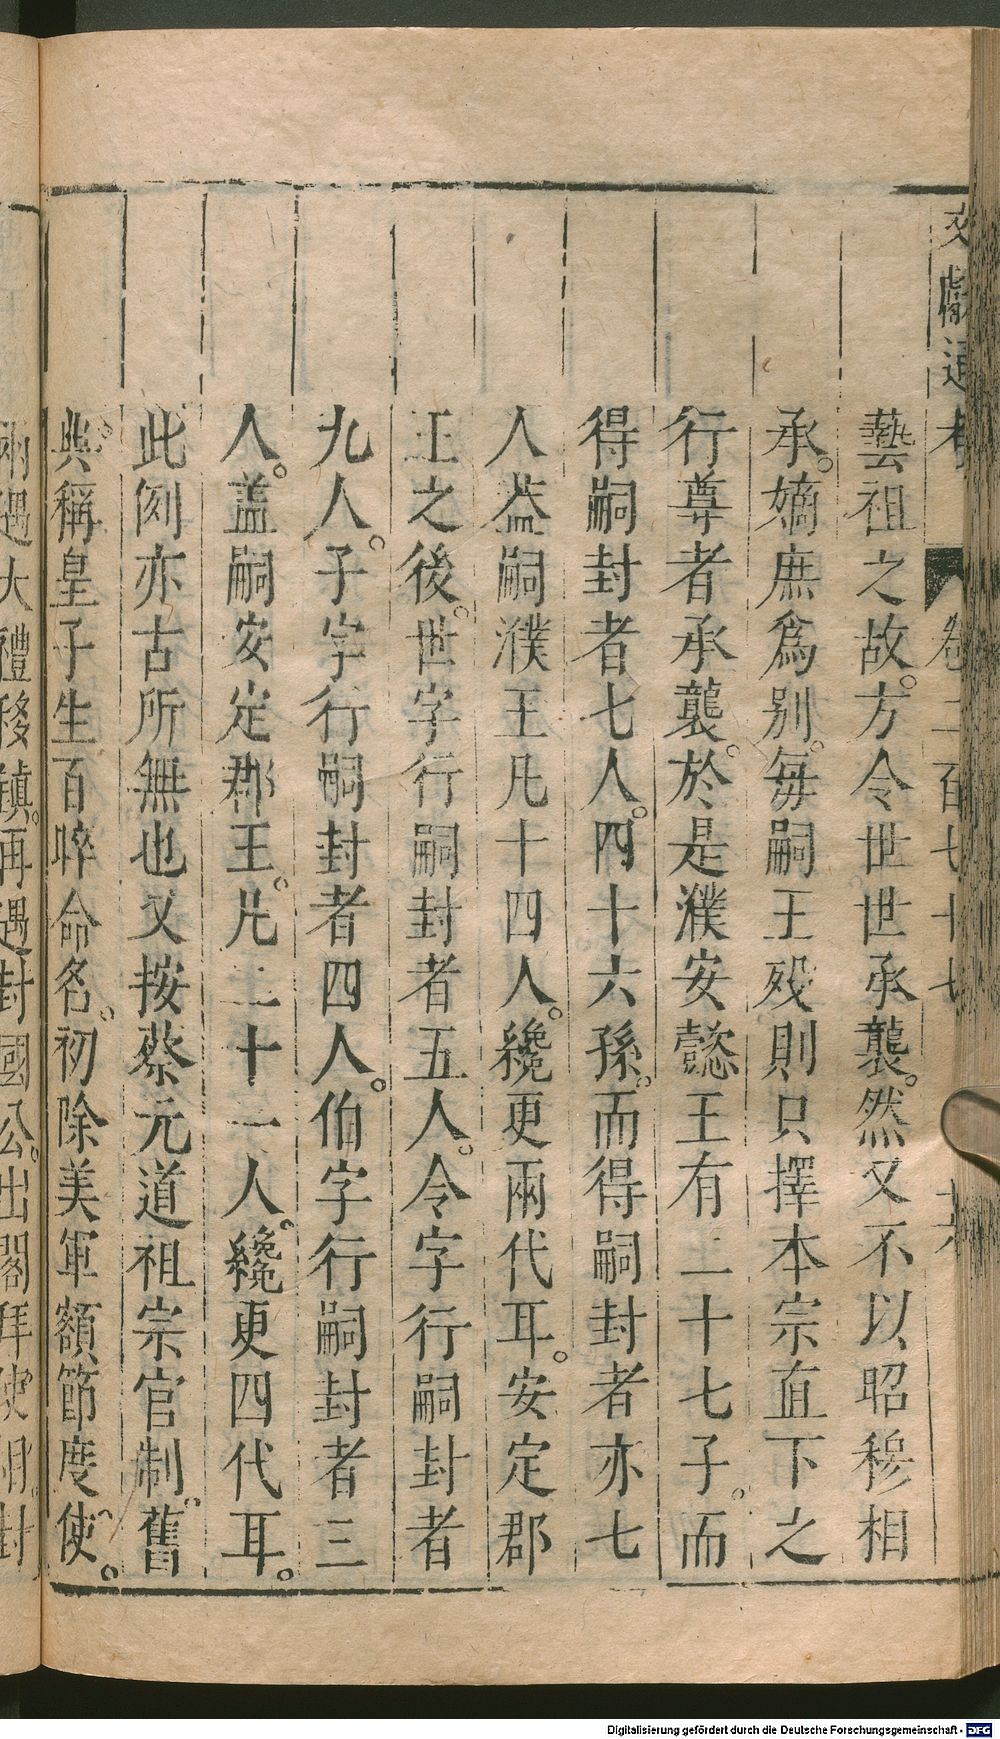 文獻通考 卷二百七十七
藝祖之故。方令世世承襲。然又不以昭穆相
承。嫡庶爲別。每嗣王殁則只擇本宗直下之
行尊者承襲。於是濮安懿王有二十七子。而
得嗣封者七人。四十六孫。而得嗣封者亦七
人葢嗣濮王凡十四人。纔更兩代耳。安定郡
王之後。世字行嗣封者五人。令字行嗣封者
九人。子字行嗣封者四人。伯字行嗣封者三
人。盖嗣安定郡王。凡二十一人。纔更四代耳。
此例亦古所無也又按蔡元道祖宗官制。舊
典。稱皇子生百晬命名。初除美軍額節度使。
兩遇大禮移鎮。再遇封國公。出閣拜使相。封
Digitalisierung gefördert durch die Deutsche Forschungsgemeinschaft - DFG